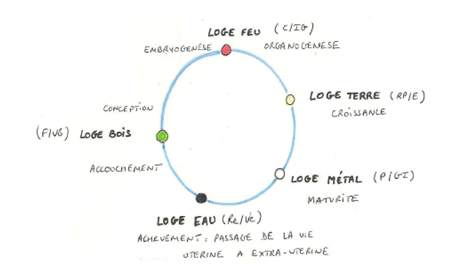 LOGE FEU (C/IG)
EMBRYOGENÈSE ORGANOGENÈSE
LOGE TERRE (RP/E)
CROISSANCE
CONCEPTION
(F/VB) LOGE BOIS
ACCOUCHEMENT
LOGE MÉTAL (P/GI)
MATURITE
LOGE EAU (Re/Ve)
ACHEVEMENT : PASSAGE DE LA VIE
UTERINE A EXTRA-UTERINE